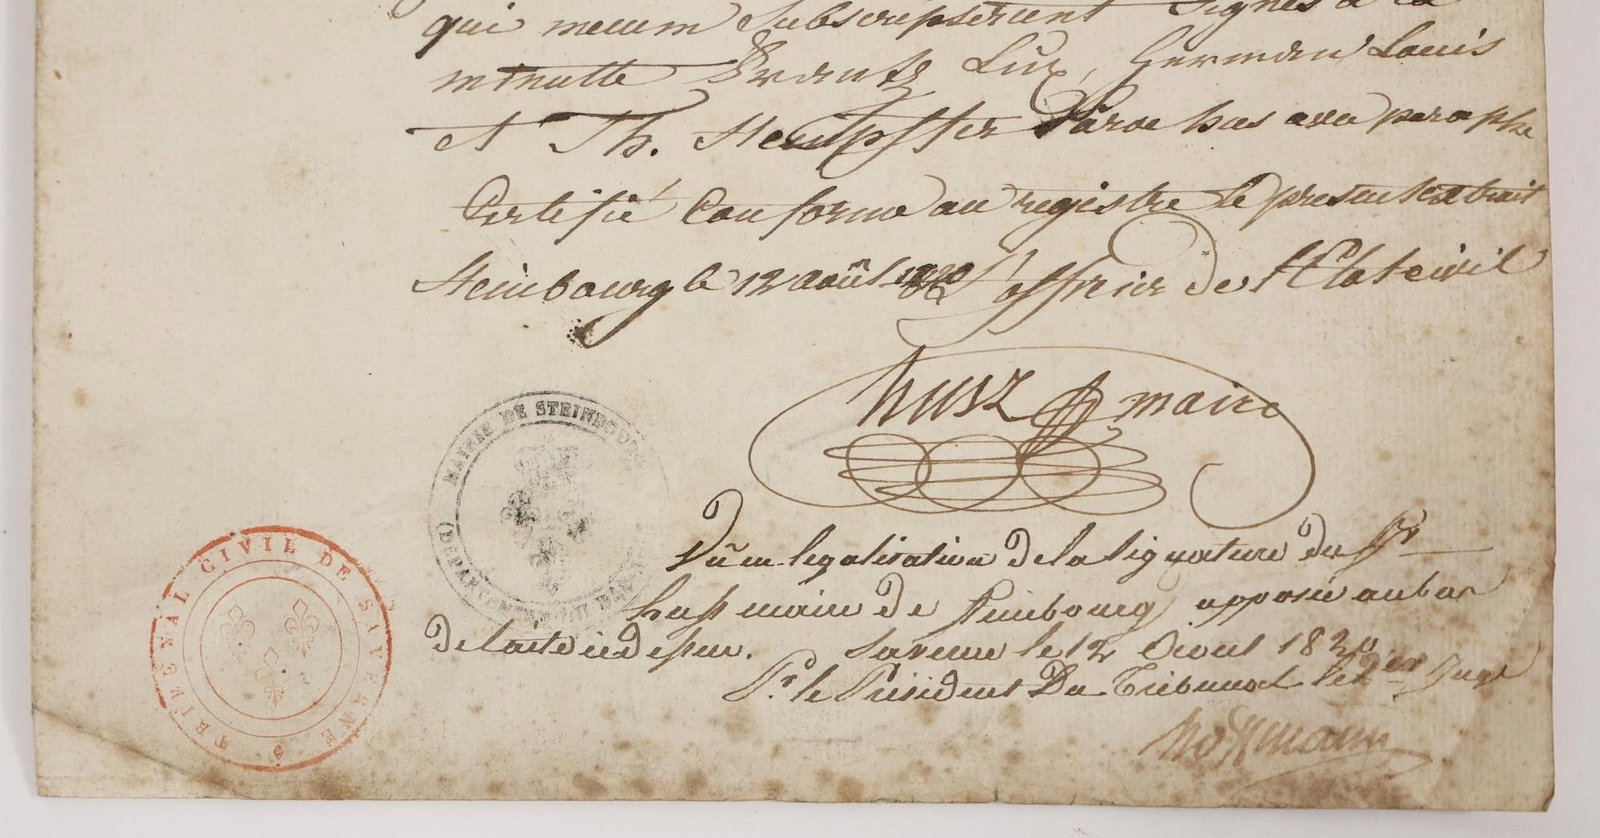 qui mecum Subscripserunt Signés à la
minutte Frantz Lux, Herman Louis
et Th. Hempffer avec paraphe
Certifié Conforme au registre le present extrait
Steinbourg le 12 août 1820 L'officier de l'Etat civil
huss maire
MAIRIE DE STEINBOURG
(DEPARTEMENT DU BAS
TRIBUNAL CIVIL DE SAVERNE
Vû en legalisation de la Signature du Sr
huss maire de Steinbourg apposée au bas
de l'acte ci dessus. Saverne le 12 Aout 1820
Pr. le Président Du Tribunal le Juge
Hoffmann